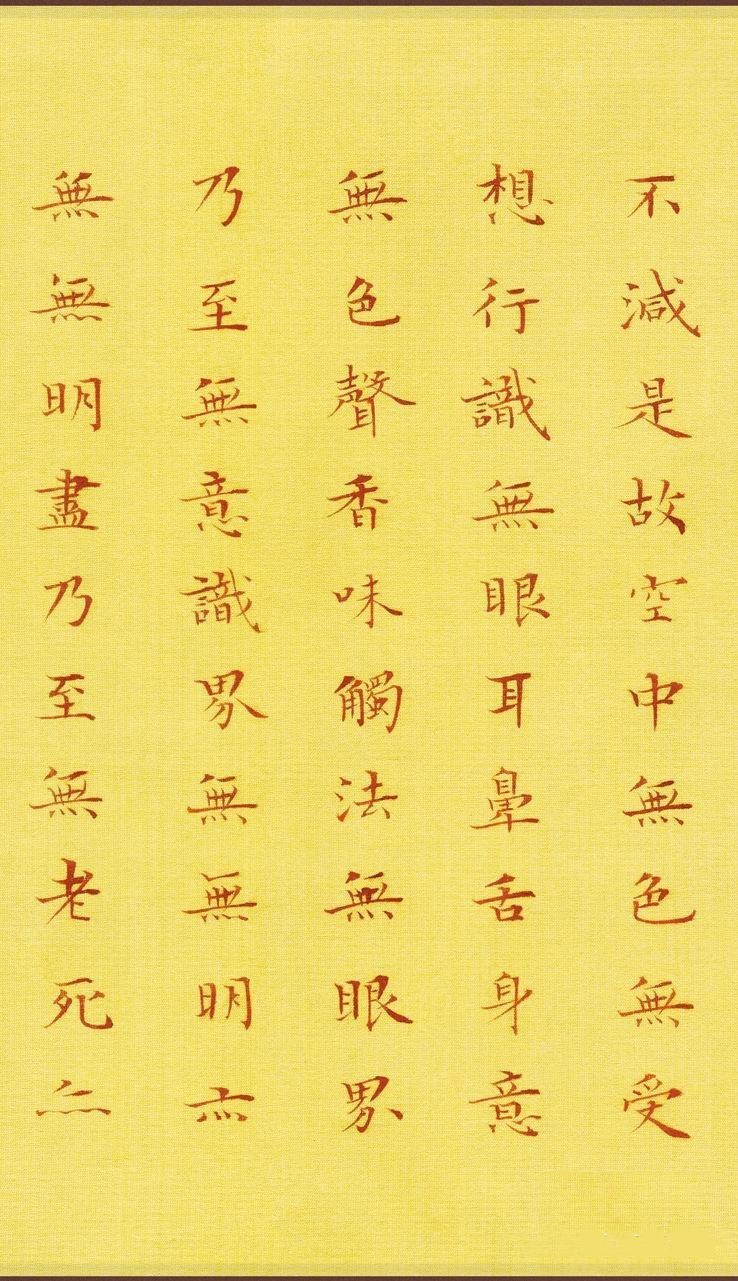 不減是故空中無色無受
想行識無眼耳鼻舌身意
無色聲香味觸法無眼界
乃至無意識界無無明亦
無無明盡乃至無老死亦